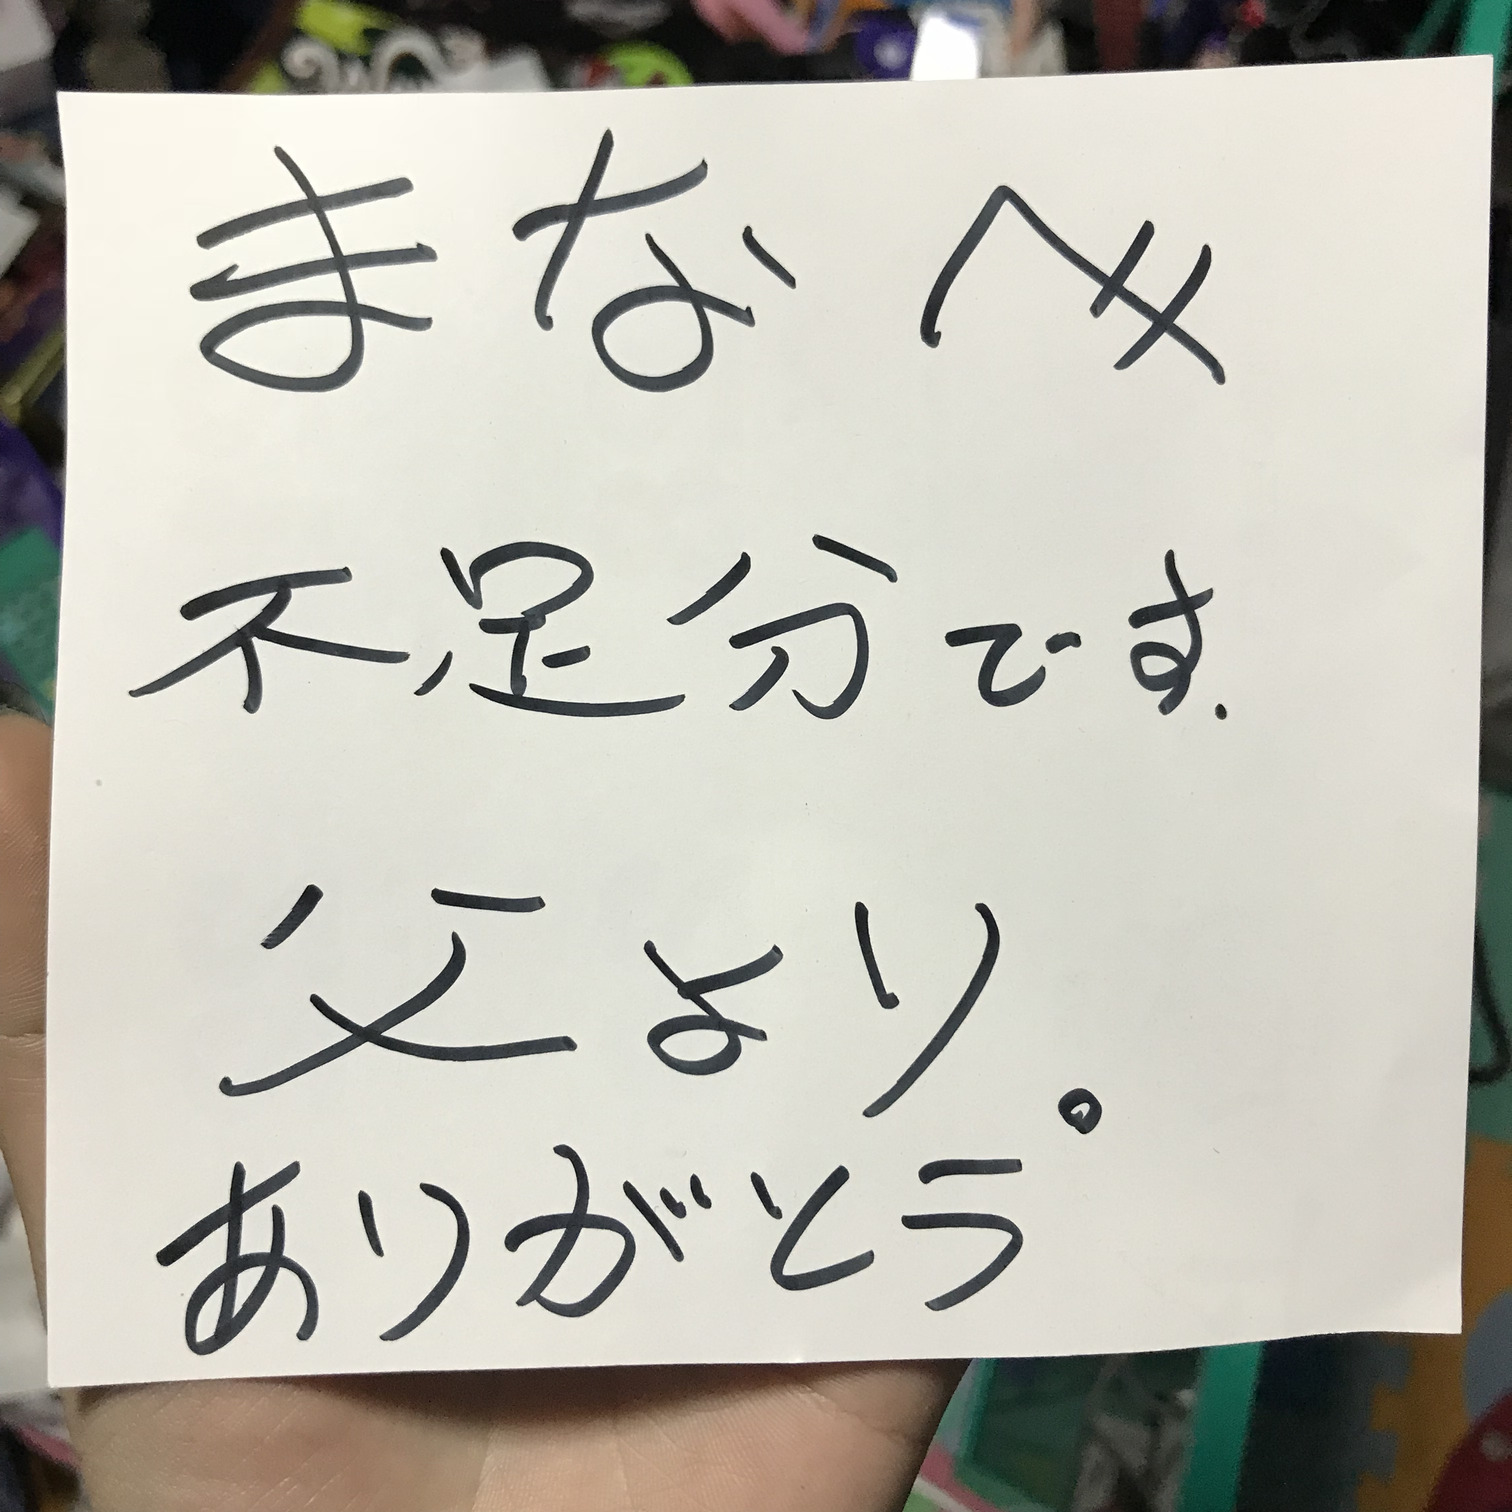 まなへ
不足分です.
父より。
ありがとう